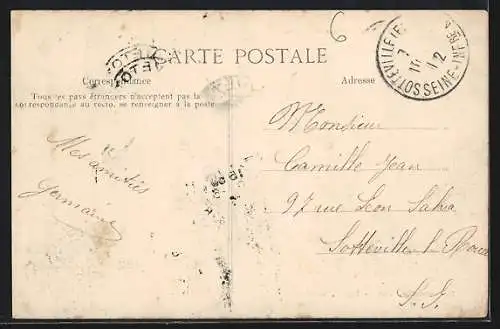 6
CARTE POSTALE
Correspondance
Adresse
Tous les pays étrangers n'acceptent pas la
correspondance au recto, se renseigner à la poste
SOTTEVILLE
SEINE-INFRE
7
12
Mes amitiés
Germaine
Monsieur
Camille Jean
97 rue Léon Salva
Sotteville l. Rouen
S. I.